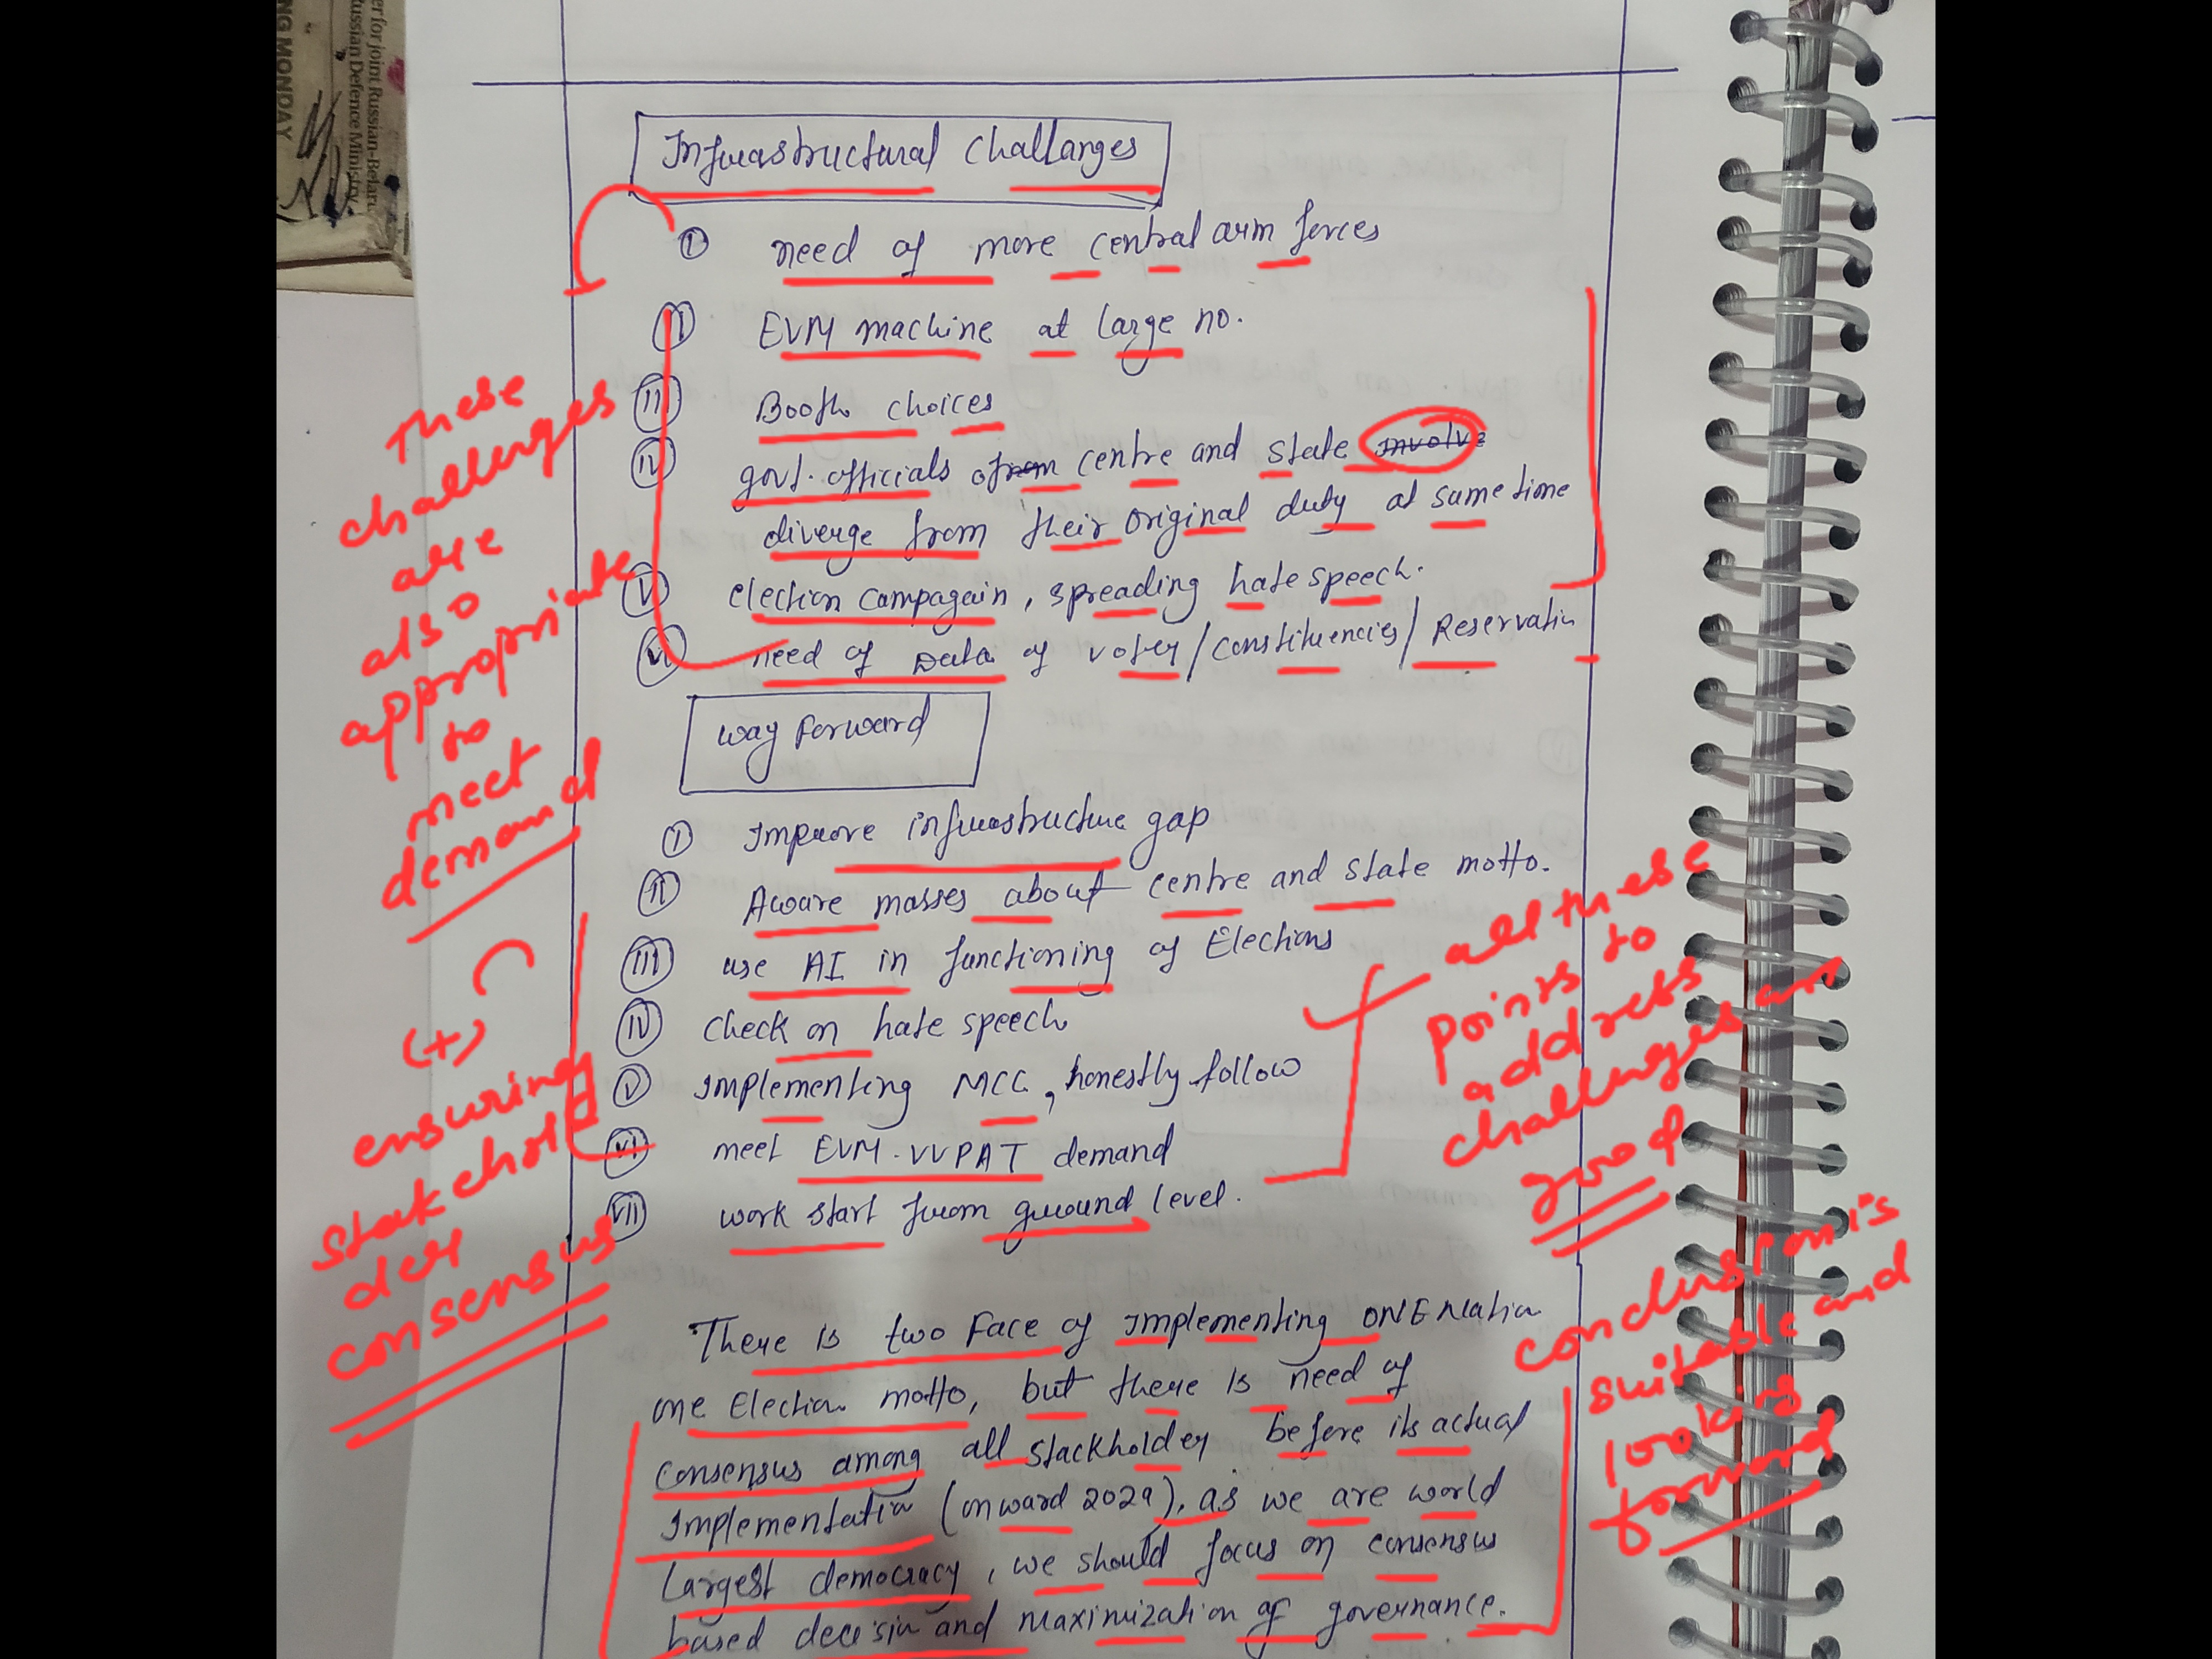 er for joint Russian-Belaru
Russian Defence Ministry
NG MONDAY
Infrastructural Challanges
(I) need of more central arm forces
(II) EVM machine at large no.
(III) Booth choices
(IV) govt. officials of centre and state involve
diverge from their original duty at same time
(V) election campagain, spreading hate speech.
(VI) need of Data of voter/constituencies/Reservatin
These
challenges
are
also
appropriate
to
meet
demand
way forward
(I) Improve infrastructure gap
(II) Aware masses about centre and state motto.
(III) use AI in functioning of Elections
(IV) check on hate speech
(V) Implementing MCC, honestly follow
(VI) meet EVM-VVPAT demand
(VII) work start from ground level.
(+)
ensuring
stakehol
der
consensus
all these
points to
address
challenges are
good
There is two Face of Implementing ONE Nation
one Election motto, but there is need of
consensus among all stackholder before its actual
Implementatin (onward 2029), as we are world
Largest democracy, we should focus on consensus
based decisin and maximization of governance.
conclusion is
suitable and
looking
forward